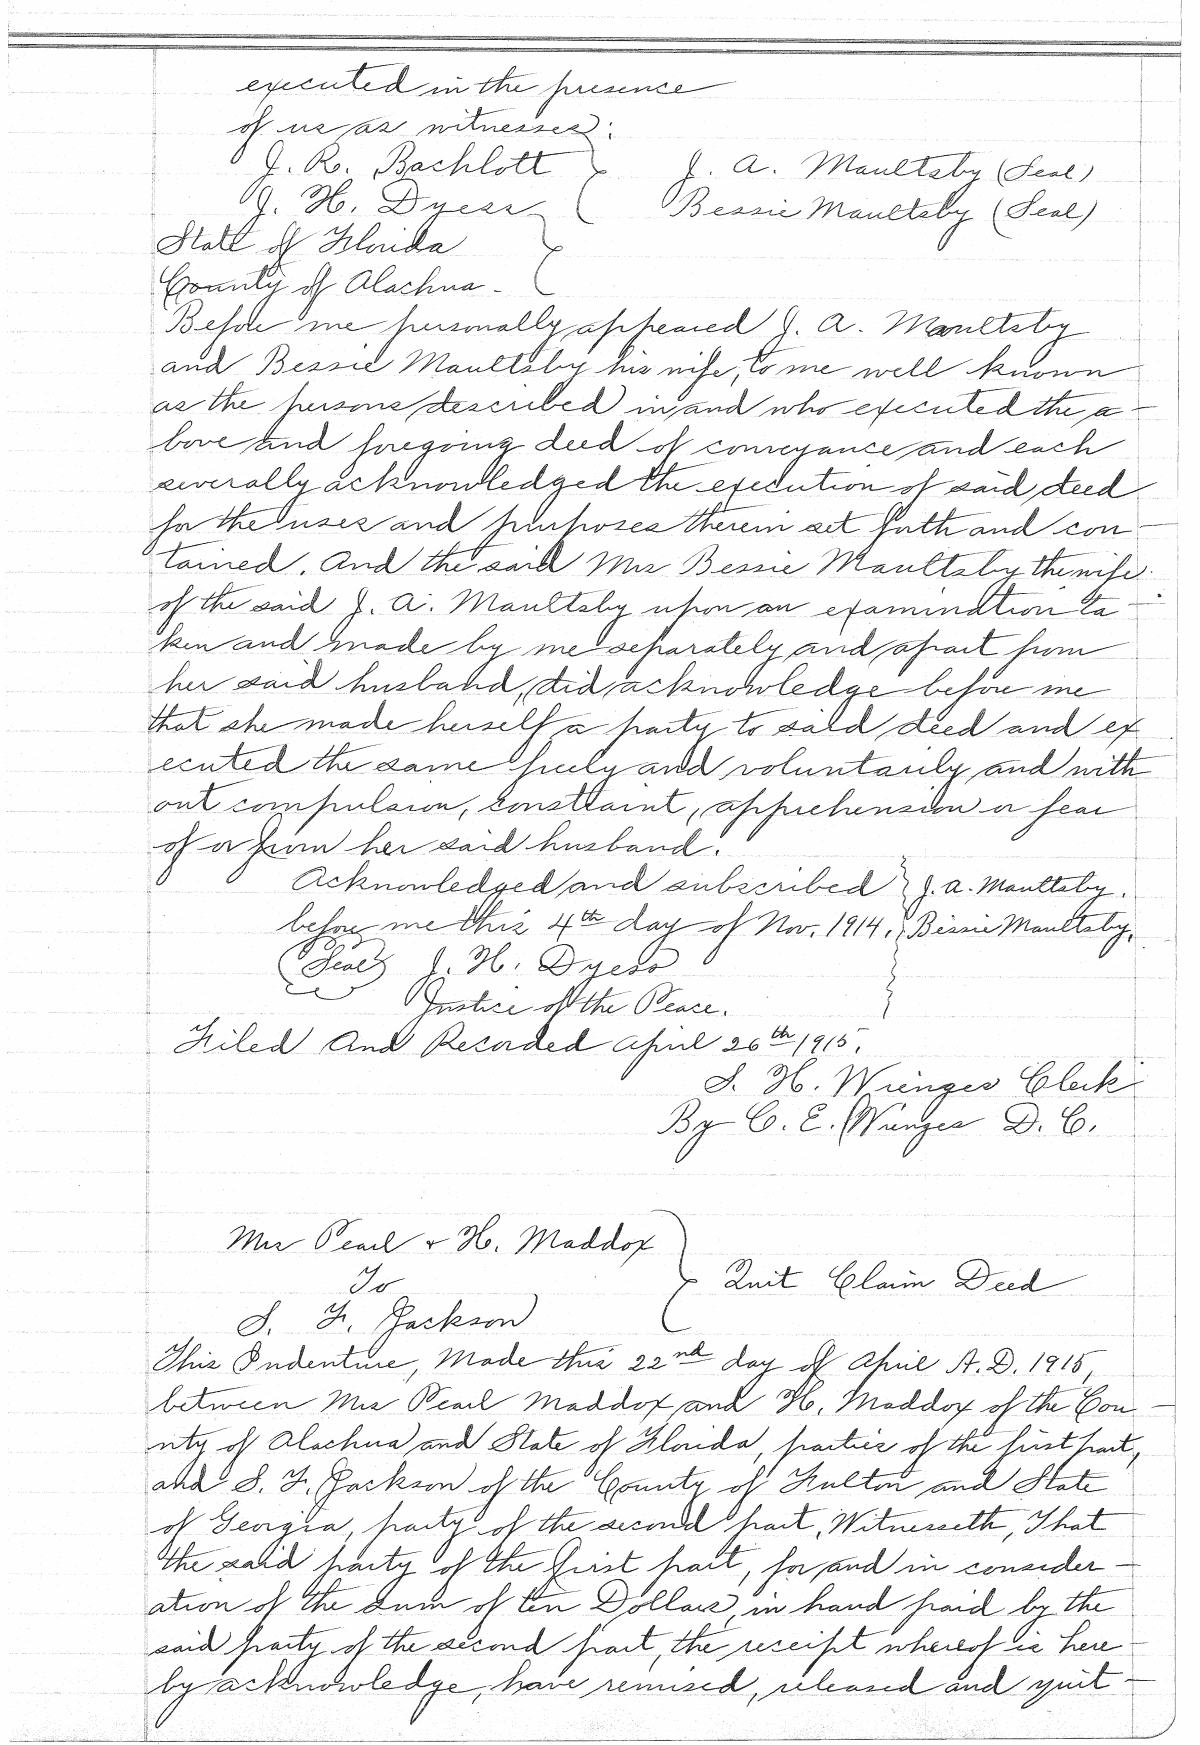 executed in the presence
of us as witnesses:
J. R. Bachlott J. A. Maultsby (Seal)
J. H. Dyess Bessie Maultsby (Seal)
State of Florida
County of Alachua -
Before me personally appeared J. A. Maultsby
and Bessie Maultsby his wife, to me well known
as the persons described in and who executed the a-
bove and foregoing deed of conveyance and each
severally acknowledged the execution of said deed
for the uses and purposes therein set forth and con-
tained. And the said Mrs Bessie Maultsby the wife
of the said J. A. Maultsby upon an examination ta-
ken and made by me separately and apart from
her said husband, did acknowledge before me
that she made herself a party to said deed and ex
ecuted the same freely and voluntarily and with
out compulsion, constraint, apprehension or fear
of or from her said husband.
Acknowledged and subscribed J. A. Maultsby.
before me this 4th day of Nov. 1914. Bessie Maultsby.
(Seal) J. H. Dyess
Justice of the Peace.
Filed And Recorded April 26th 1915.
S. H. Wienges Clerk
By C. E. Wienges D. C.
Mrs Pearl & H. Maddox
To Quit Claim Deed
S. F. Jackson
This Indenture, Made this 22nd day of April A.D. 1915,
between Mrs Pearl Maddox and H. Maddox of the Cou-
nty of Alachua and State of Florida, parties of the first part,
and S. F. Jackson of the County of Fulton and State
of Georgia, party of the second part, Witnesseth, That
the said party of the first part, for and in consider-
ation of the sum of ten Dollars, in hand paid by the
said party of the second part, the receipt whereof is here-
by acknowledge, have remised, released and quit-